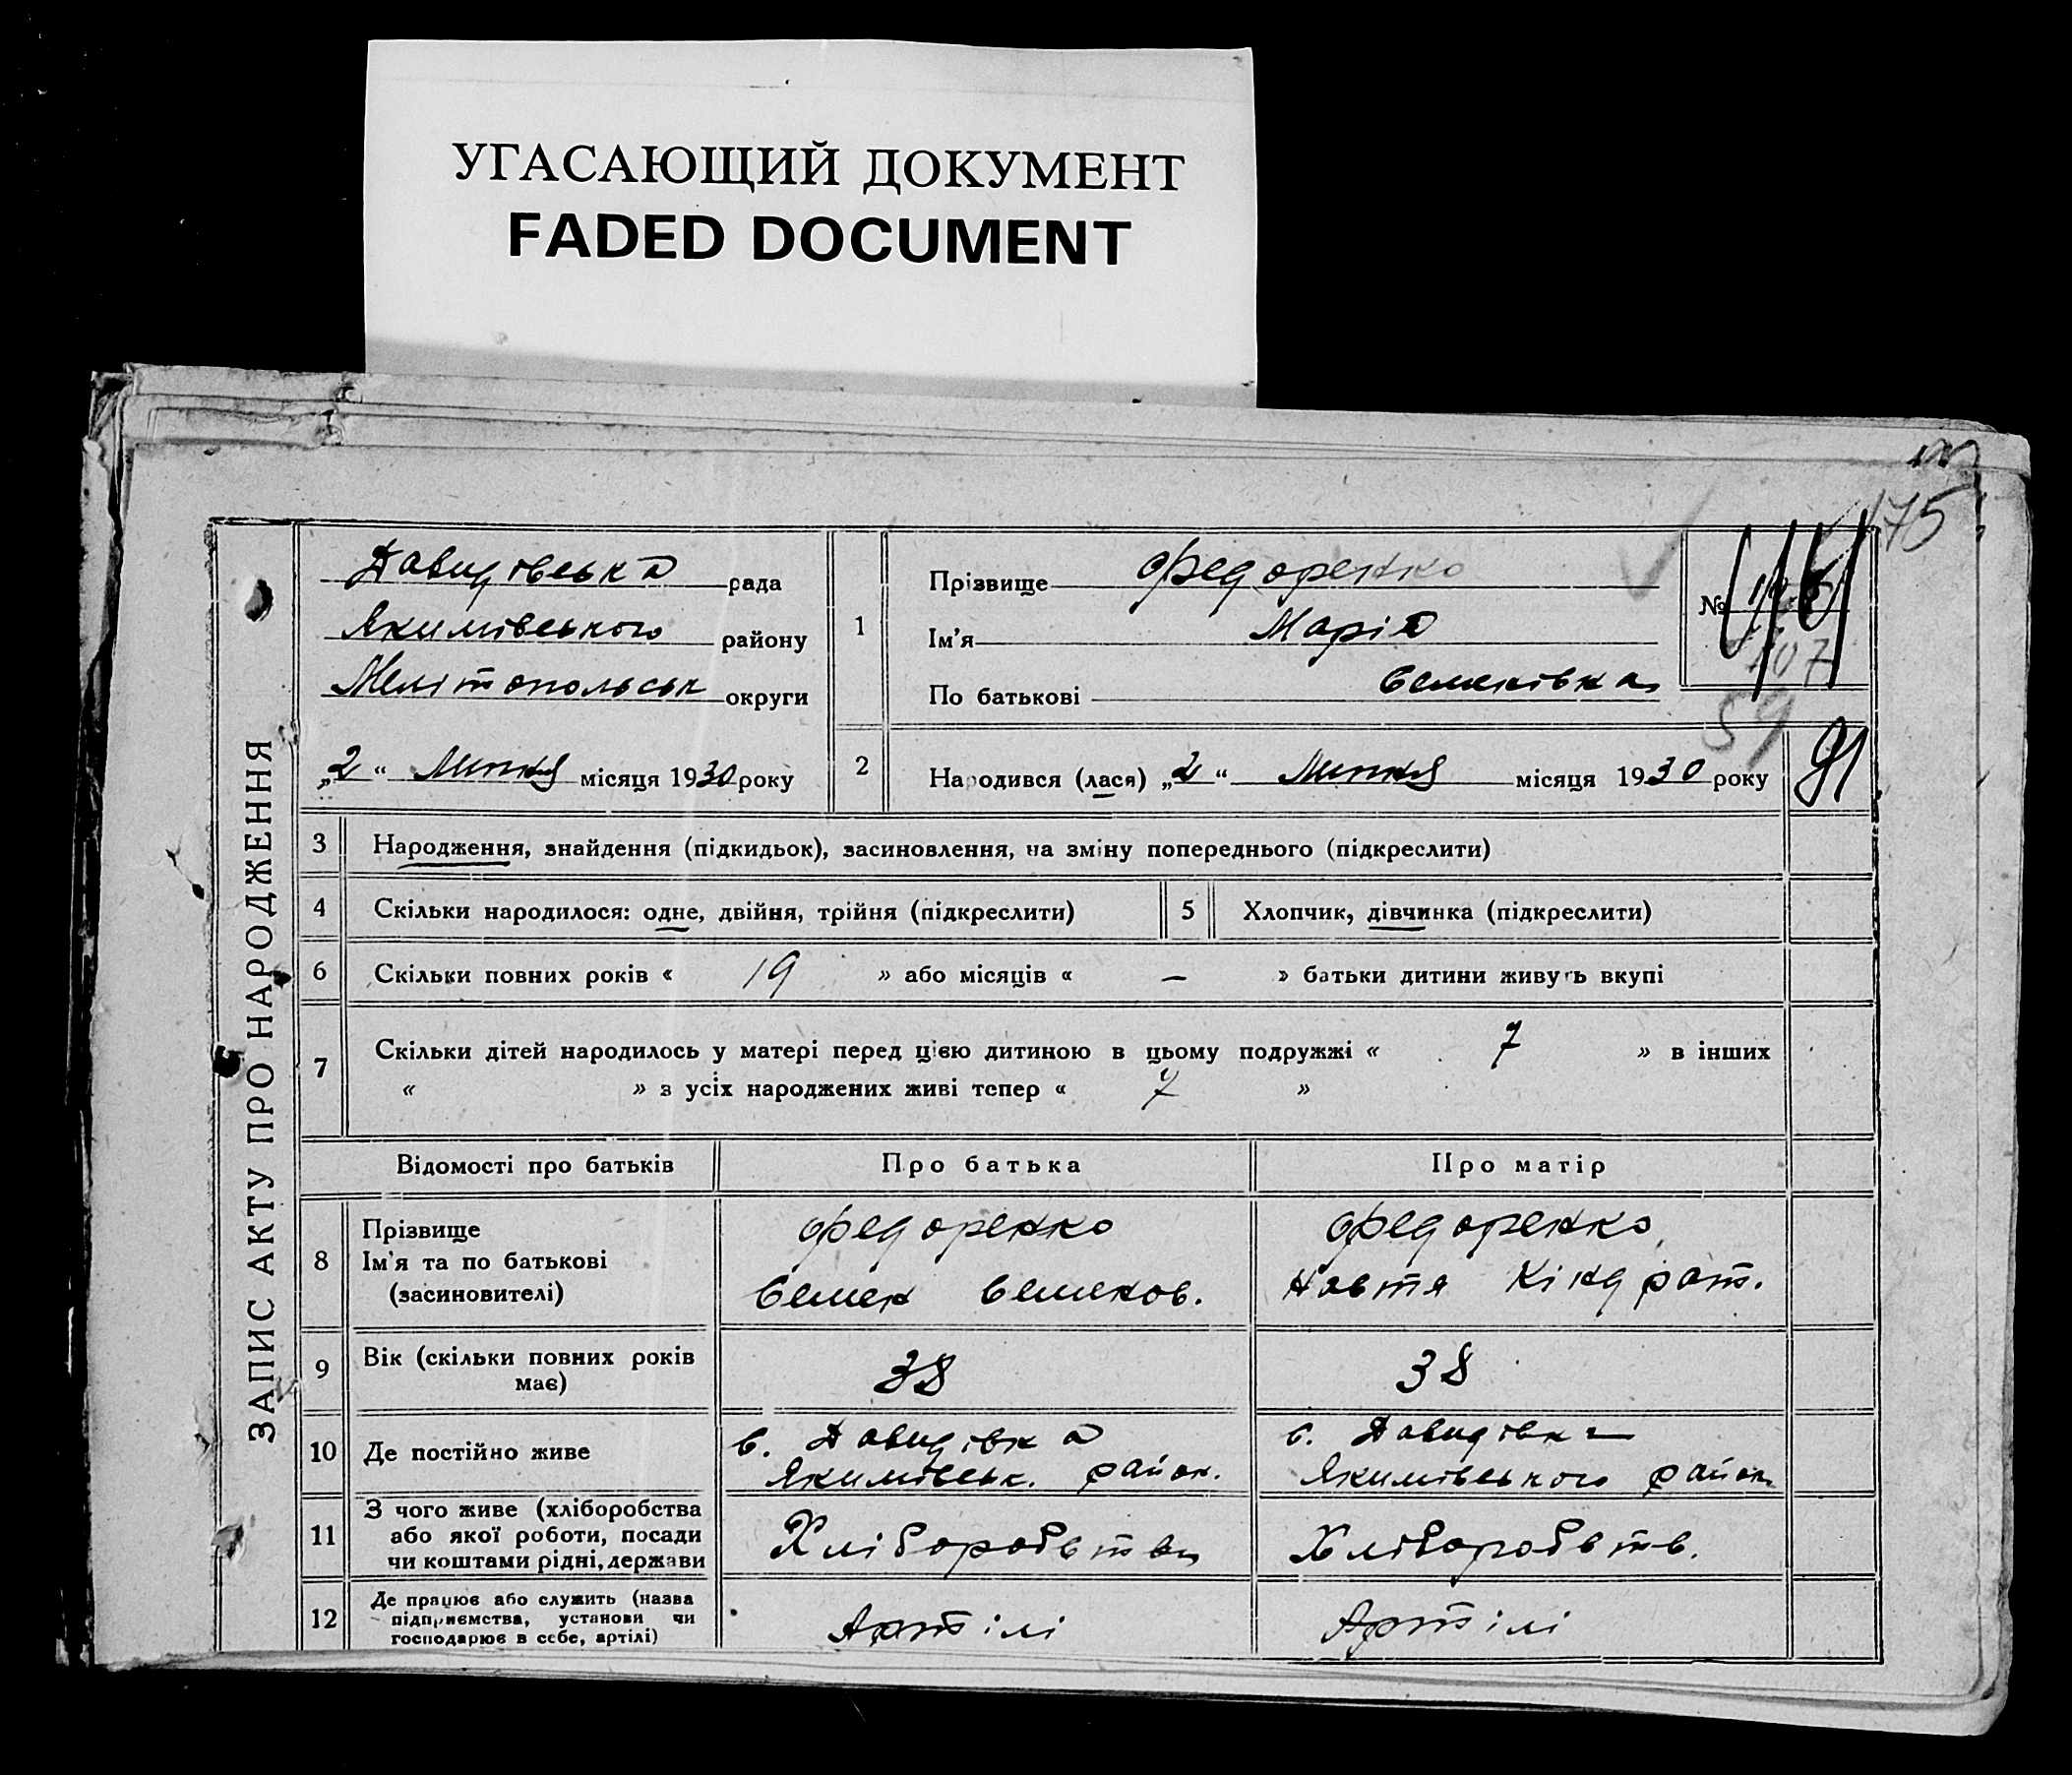 УГАСАЮЩИЙ ДОКУМЕНТ
FADED DOCUMENT
175
ЗАПИС АКТУ ПРО НАРОДЖЕННЯ
Давидівська рада
Якимівського району
Мелітопольськ округи
„2“ Липня місяця 1930 року
1
Прізвище Федоренко
Ім'я Марія
По батькові Семенівна
№
107
59
2
Народився (лася) „2“ Липня місяця 1930 року
91
3 Народження, знайдення (підкидьок), засиновлення, на зміну попереднього (підкреслити)
4 Скільки народилося: одне, двійня, трійня (підкреслити)
5 Хлопчик, дівчинка (підкреслити)
6 Скільки повних років « 19 » або місяців « — » батьки дитини живуть вкупі
7 Скільки дітей народилось у матері перед цією дитиною в цьому подружжі « 7 » в інших
« » з усіх народжених живі тепер « 7 »
Відомості про батьків Про батька Про матір
8 Прізвище
Ім'я та по батькові
(засиновителі)
Федоренко
Семен Семенов.
Федоренко
Настя Кіндрат.
9 Вік (скільки повних років
має)
38
38
10 Де постійно живе
с. Давидівка
Якимівськ. район.
с. Давидівка
Якимівського район
11 З чого живе (хліборобства
або якої роботи, посади
чи коштами рідні, держави
Хліборобство
Хліборобств.
12 Де працює або служить (назва
підприємства, установи чи
господарює в себе, артілі)
Артілі
Артілі